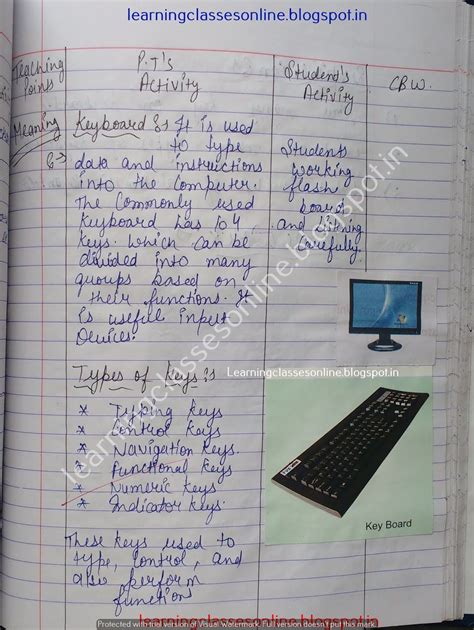 learningclassesonline.blogspot.in
Teaching Points
P.T's Activity
Student's Activity
CBW.
Meaning
Keyboard :- It is used
to type
data and instructions
into the Computer.
The Commonly used
Keyboard has 104
Keys. Which can be
divided into many
groups based on
their functions. It
is useful input
Devices.
Students
working
flash
board
and listning
Carefully.
Types of Keys :-
* Typing keys
* Control keys
* Navigation keys.
* Functional keys
* Numeric keys
* Indicator keys.
These keys used to
type, control, and
also perform
function
Learningclassesonline.blogspot.in
Key Board
learningclassesonline.blogspot.in
Protected with free version of Visual Watermark. Full version doesn't put this mark.
learningclassesonline.blogspot.in